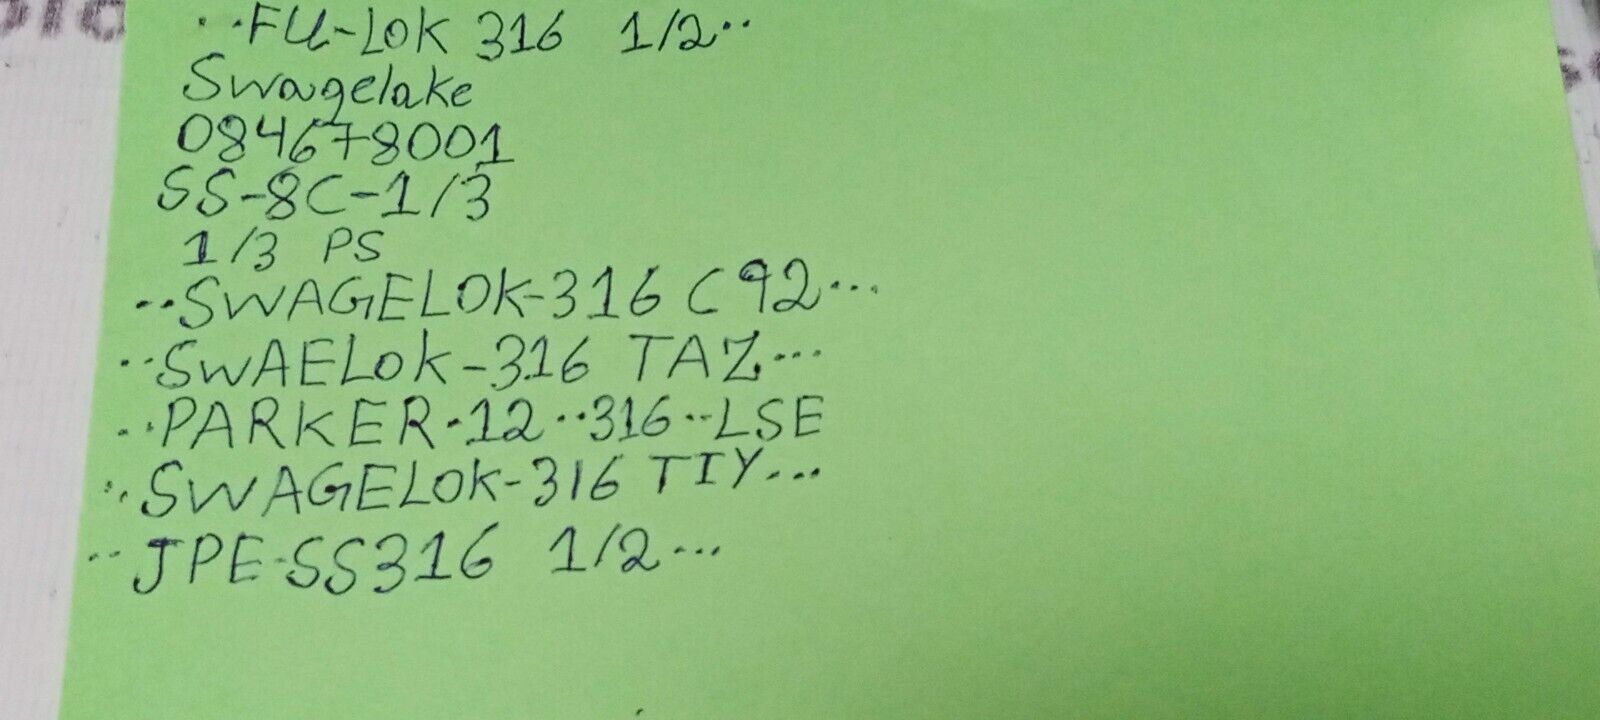 ..FU-LOK 316 1/2..
Swagelake
084678001
SS-8C-1/3
1/3 PS
..SWAGELOK-316 C92...
..SWAELOK-316 TAZ...
..PARKER.12..316..LSE
..SWAGELOK-316 TIY...
..JPE-SS316 1/2...